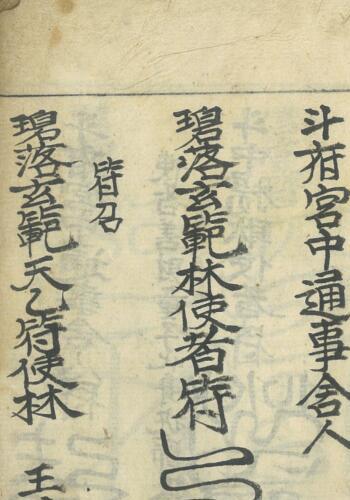 斗府宮中通事舍人
碧落玄範林使者符
符召
碧落玄範天乙符使林
王